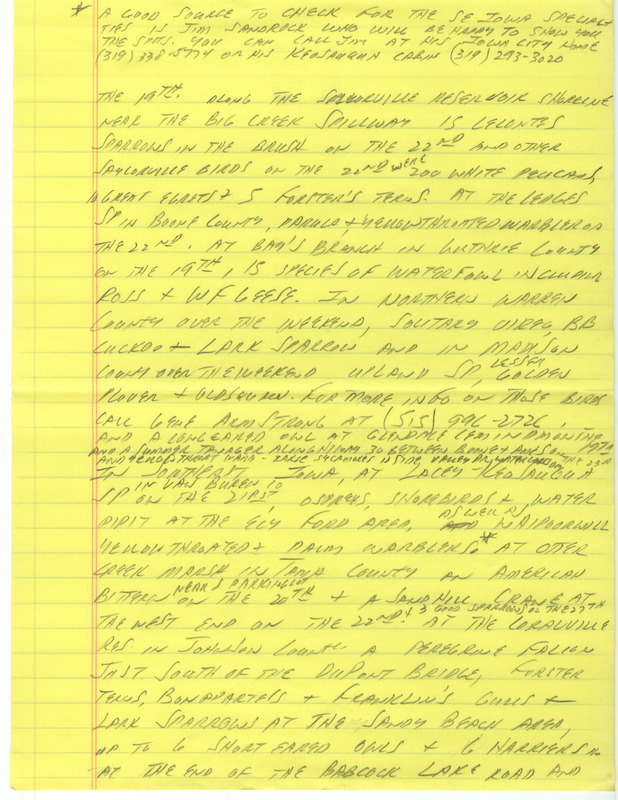 * A GOOD SOURCE TO CHECK FOR THE SE IOWA SPECIAL
TIES IS JIM SANDROCK WHO WILL BE HAPPY TO SHOW YOU
THE SPOTS. YOU CAN CALL JIM AT HIS IOWA CITY HOME
(319) 338-5774 OR HIS KEOSAUQUA CABIN (319) 293-3020
THE 19TH. ALONG THE SAYLORVILLE RESERVOIR SHORELINE
NEAR THE BIG CREEK SPILLWAY IS LECONTES
SPARROWS IN THE BRUSH ON THE 22ND AND OTHER
SAYLORVILLE BIRDS ON THE 22ND WERE 200 WHITE PELICANS,
10 GREAT EGRETS + 5 FORSTER'S TERNS. AT THE LEDGES
SP IN BOONE COUNTY, PARULA + YELLOWTHROATED WARBLER ON
THE 22ND. AT BAY'S BRANCH IN GUTHRIE COUNTY
ON THE 19TH, 15 SPECIES OF WATERFOWL INCLUDING
ROSS + WF GEESE. IN NORTHERN WARREN
COUNTY OVER THE WEEKEND, SOLITARY VIREO, BB
CUCKOO + LARK SPARROW AND IN MADISON
COUNTY OVER THE WEEKEND UPLAND SP, LESSER GOLDEN
PLOVER + OLDSQUAW. FOR MORE INFO ON THOSE BIRDS
CALL GENE ARMSTRONG AT (515) 996-2726,
AND A LONG EARED OWL AT GLENDALE CEM IN DMOINES
AND A SUMMER TANAGER ALONG HIWAY 30 BETWEEN BOONE + AMES ON 19TH
AND YELLOWTHROAT WARB - LARGE SYCAMORE IN VALLEY ON THE 23R
IN SOUTHERN IOWA, AT LACEY KEOSAUQUA
IN VAN BUREN CO
SP ON THE 21RST, OSPREYS, SHOREBIRDS + WATER
PIPIT AT THE ELY FORD AREA, AS WELL AS WHIPPORWILL
YELLOWTHROATED + PALM WARBLERS.* AT OTTER
CREEK MARSH IN TAMA COUNTY AN AMERICAN
BITTERN NEAR S PARKING LOT ON THE 20TH + A SANDHILL CRANE AT
THE WEST END ON THE 22ND + 3 GOOD SPARROWS ON THE 27TH. AT THE CORALVILLE
RES. IN JOHNSON COUNTY A PEREGRINE FALCON
JUST SOUTH OF THE DUPONT BRIDGE, FORSTER
TERNS, BONAPARTE'S + FRANKLIN'S GULLS +
LARK SPARROWS AT THE SANDY BEACH AREA,
UP TO 6 SHORT EARED OWLS + 6 HARRIERS
AT THE END OF THE BABCOCK LAKE ROAD AND